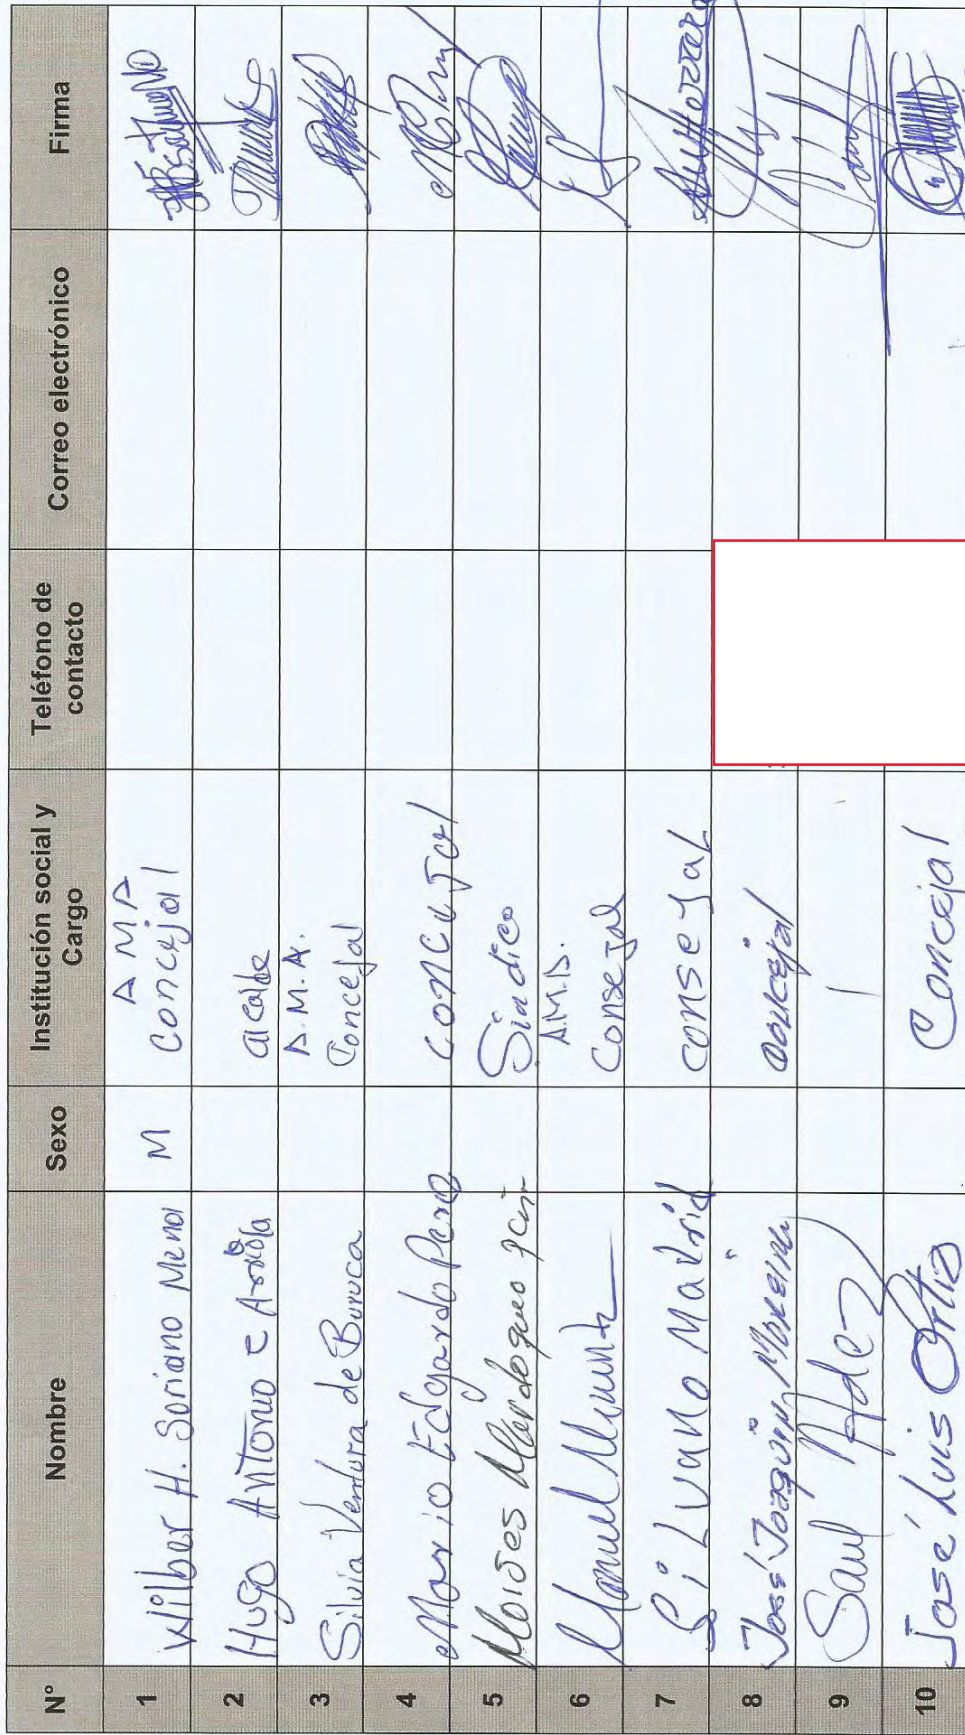 N° Nombre Sexo Institución social y Cargo Teléfono de contacto Correo electrónico Firma
1 Wilber H. Soriano Mena M AMA Concejal
2 Hugo Antonio C Arriola alcalde
3 Silvia Ventura de Buruca A.M.A. Concejal
4 Mario Edgardo Perez concejal
5 Moises Mardoqueo Sindico
6 Manuel A.M.A. Consejal
7 Silvano Madrid consejal
8 José Joaquin Moreira concejal
9 Saul Hdez
10 José Luis Ortiz Concejal